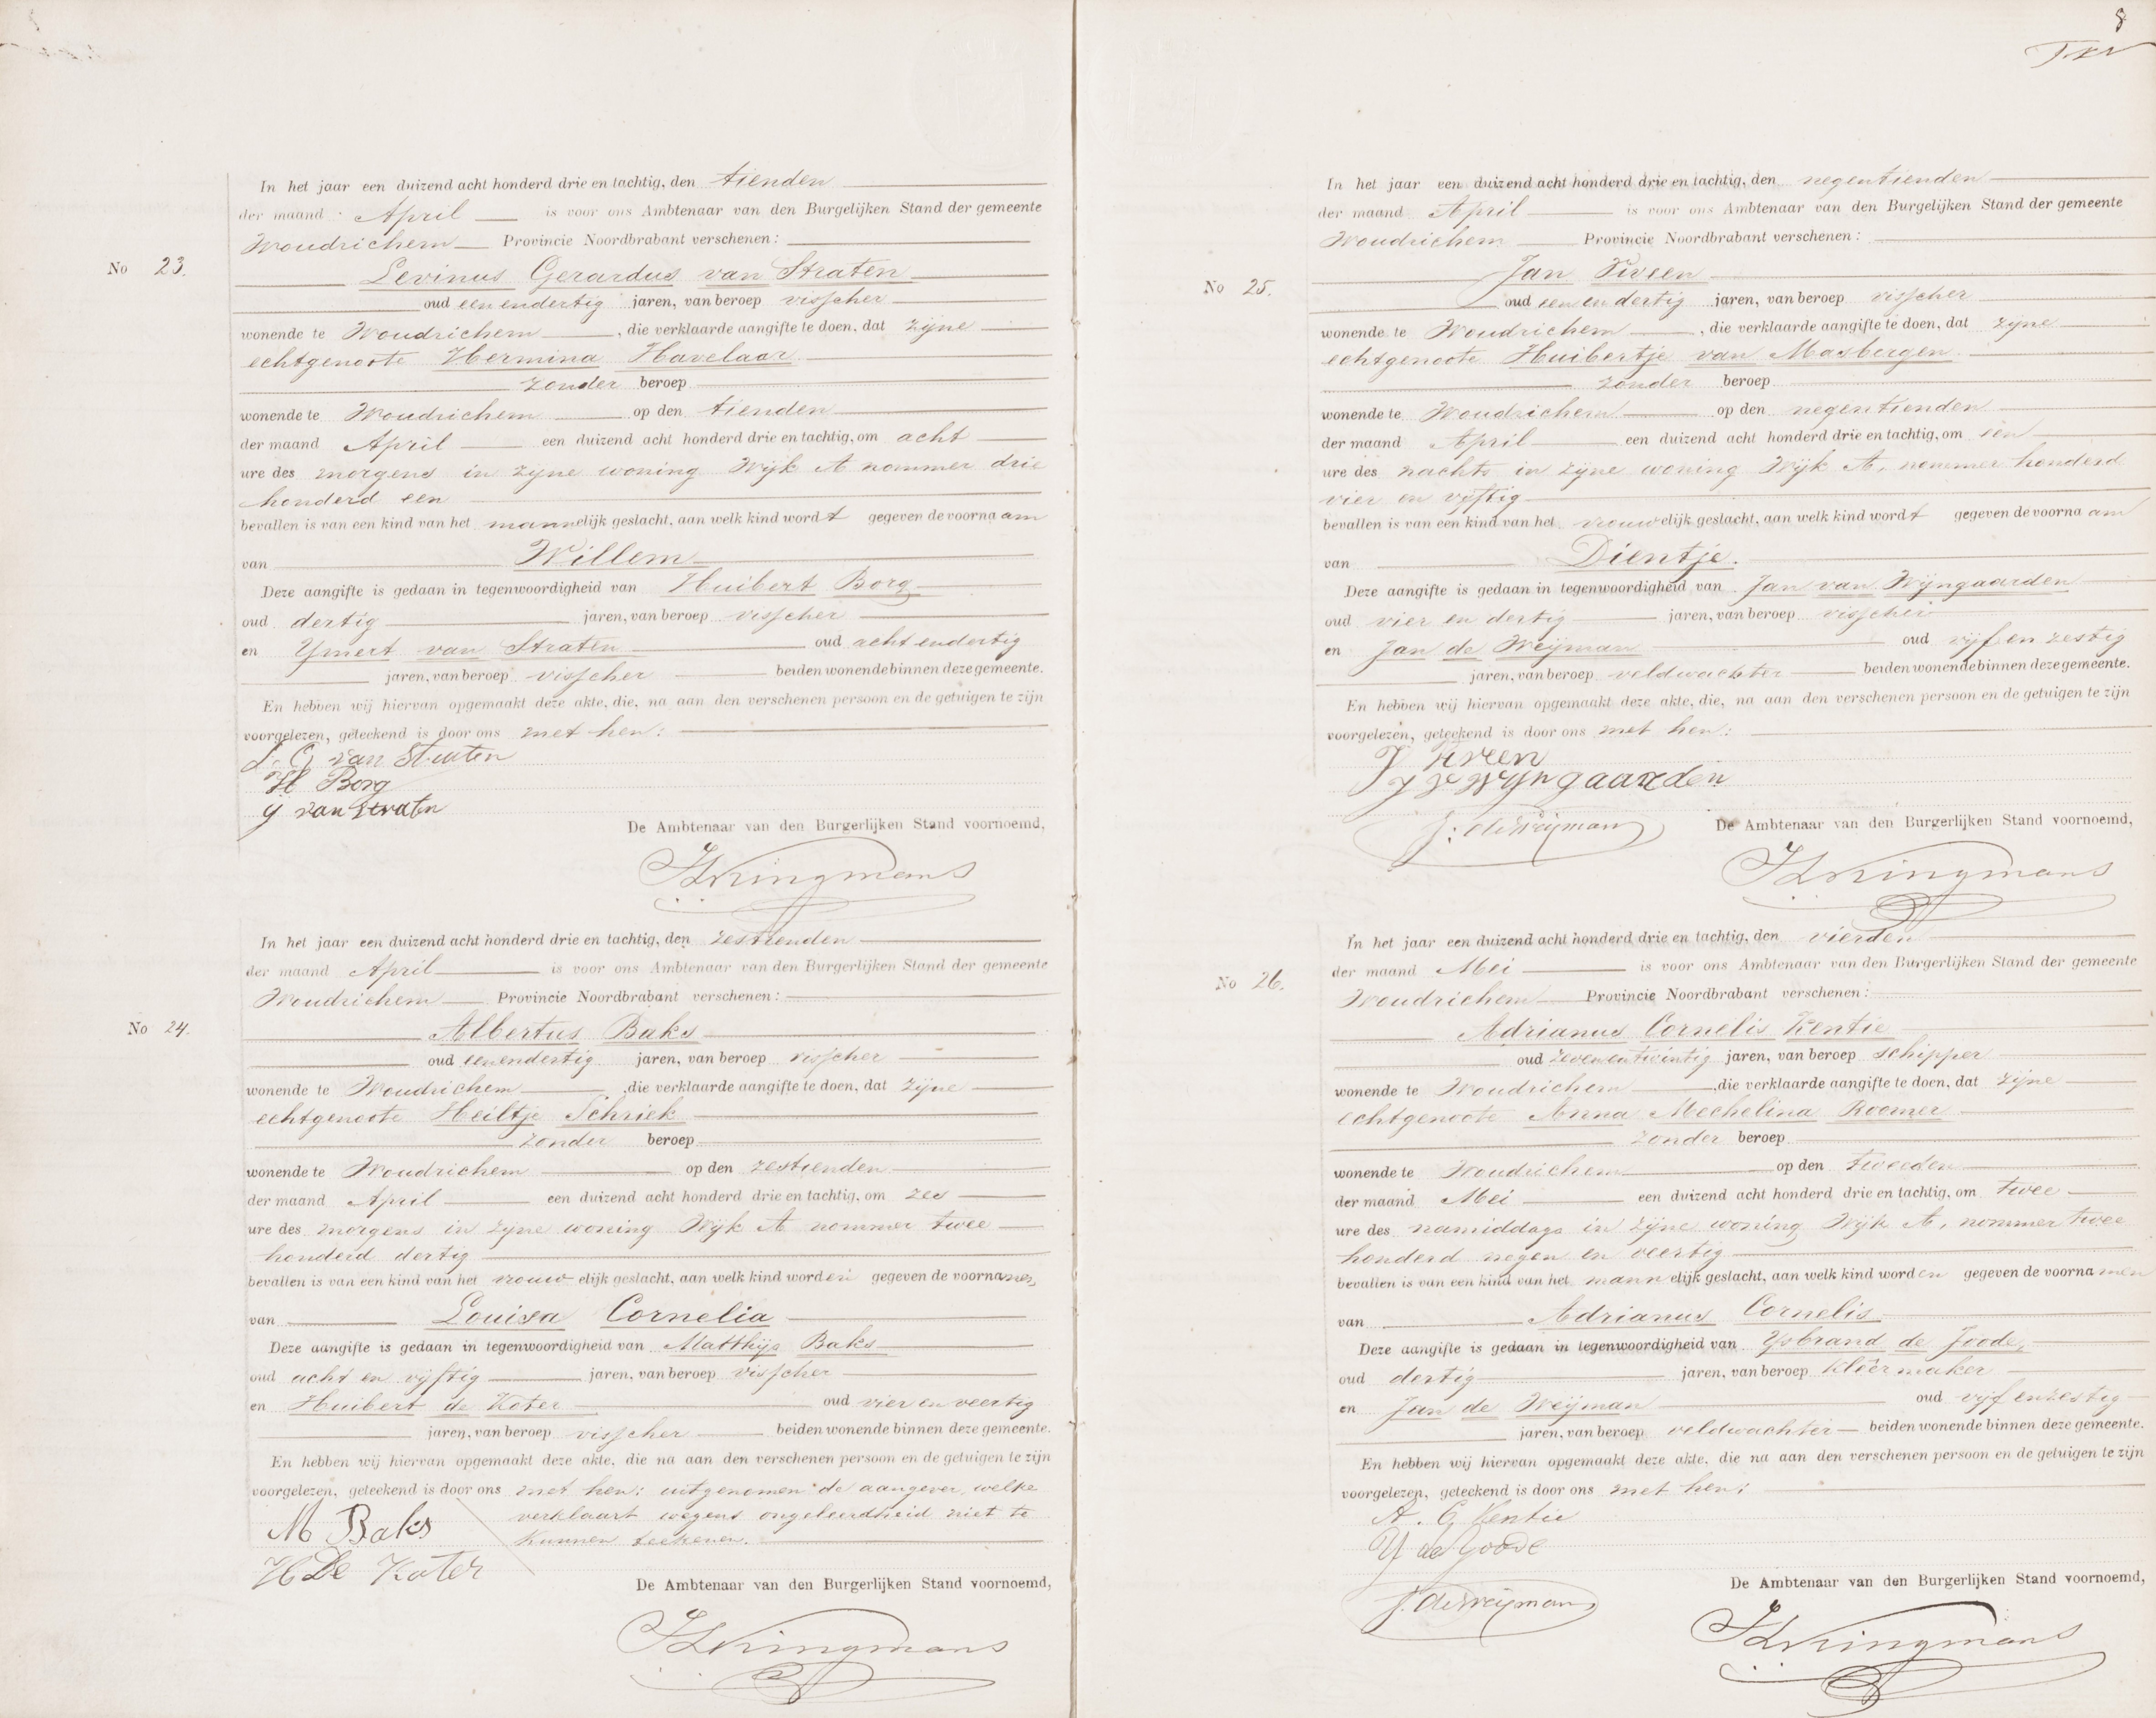 No 23.
In het jaar een duizend acht honderd drie en tachtig, den tienden
der maand April is voor ons Ambtenaar van den Burgelijken Stand der gemeente
Woudrichem Provincie Noordbrabant verschenen:
Levinus Gerardus van Straten
oud een endertig jaren, van beroep visscher
wonende te Woudrichem, die verklaarde aangifte te doen, dat zijne
echtgenoote Hermina Havelaar
zonder beroep
wonende te Woudrichem op den tienden
der maand April een duizend acht honderd drie en tachtig, om acht
ure des morgens in zijne woning Wijk A nommer drie
honderd een
bevallen is van een kind van het mannelijk geslacht, aan welk kind wordt gegeven de voornaam
van Willem
Deze aangifte is gedaan in tegenwoordigheid van Huibert Borg
oud dertig jaren, van beroep visscher
en Ymert van Straten oud acht endertig
jaren, van beroep visscher beiden wonende binnen deze gemeente.
En hebben wij hiervan opgemaakt deze akte, die, na aan den verschenen persoon en de getuigen te zijn
voorgelezen, geteekend is door ons met hen:
L. G van Straten
H Borg
Y van Straten
De Ambtenaar van den Burgerlijken Stand voornoemd,
No 24.
In het jaar een duizend acht honderd drie en tachtig, den zestienden
der maand April is voor ons Ambtenaar van den Burgerlijken Stand der gemeente
Woudrichem Provincie Noordbrabant verschenen:
Albertus Baks
oud eenendertig jaren, van beroep visscher
wonende te Woudrichem, die verklaarde aangifte te doen, dat zijne
echtgenoote Heiltje Schriek
zonder beroep
wonende te Woudrichem op den zestienden
der maand April een duizend acht honderd drie en tachtig, om zes
ure des morgens in zijne woning Wijk A nommer twee
honderd dertig
bevallen is van een kind van het vrouwelijk geslacht, aan welk kind worden gegeven de voornamen
van Louisa Cornelia
Deze aangifte is gedaan in tegenwoordigheid van Matthijs Baks
oud acht en vijftig jaren, van beroep visscher
en Huibert de Koter oud vier en veertig
jaren, van beroep visscher beiden wonende binnen deze gemeente.
En hebben wij hiervan opgemaakt deze akte, die na aan den verschenen persoon en de getuigen te zijn
voorgelezen, geteekend is door ons met hen; uitgenomen de aangever, welke
verklaart wegens ongeleerdheid niet te
kunnen teekenen.
M Baks
H De Koter
De Ambtenaar van den Burgerlijken Stand voornoemd,
8
No 25.
In het jaar een duizend acht honderd drie en tachtig, den negentienden
der maand April is voor ons Ambtenaar van den Burgelijken Stand der gemeente
Woudrichem Provincie Noordbrabant verschenen:
Jan
oud een en dertig jaren, van beroep visscher
wonende te Woudrichem, die verklaarde aangifte te doen, dat zijne
echtgenoote Huibertje van Masbergen
zonder beroep
wonende te Woudrichem op den negentienden
der maand April een duizend acht honderd drie en tachtig, om één
ure des nachts in zijne woning Wijk A, nommer honderd
vier en vijftig
bevallen is van een kind van het vrouwelijk geslacht, aan welk kind wordt gegeven de voornaam
van Dientje.
Deze aangifte is gedaan in tegenwoordigheid van Jan van Wijngaarden
oud vier en dertig jaren, van beroep visscher
en Jan de Weijman oud vijf en zestig
jaren, van beroep veldwachter beiden wonende binnen deze gemeente.
En hebben wij hiervan opgemaakt deze akte, die, na aan den verschenen persoon en de getuigen te zijn
voorgelezen, geteekend is door ons met hen:
J v Wyngaarden
J: de Weijman
De Ambtenaar van den Burgerlijken Stand voornoemd,
No 26.
In het jaar een duizend acht honderd drie en tachtig, den vierden
der maand Mei is voor ons Ambtenaar van den Burgerlijken Stand der gemeente
Woudrichem Provincie Noordbrabant verschenen:
Adrianus Cornelis Kentie
oud zevenentwintig jaren, van beroep schipper
wonende te Woudrichem, die verklaarde aangifte te doen, dat zijne
echtgenoote Anna Mechelina Roomer
zonder beroep
wonende te Woudrichem op den tweeden
der maand Mei een duizend acht honderd drie en tachtig, om twee
ure des namiddags in zijne woning Wijk A, nommer twee
honderd negen en veertig
bevallen is van een kind van het mannelijk geslacht, aan welk kind worden gegeven de voornamen
van Adrianus Cornelis
Deze aangifte is gedaan in tegenwoordigheid van Ysbrand de Joode,
oud dertig jaren, van beroep kleermaker
en Jan de Weijman oud vijf enzestig
jaren, van beroep veldwachter beiden wonende binnen deze gemeente.
En hebben wij hiervan opgemaakt deze akte, die na aan den verschenen persoon en de getuigen te zijn
voorgelezen, geteekend is door ons met hen;
A. C Kentie
Y de Joode
J. de Weijman
De Ambtenaar van den Burgerlijken Stand voornoemd,